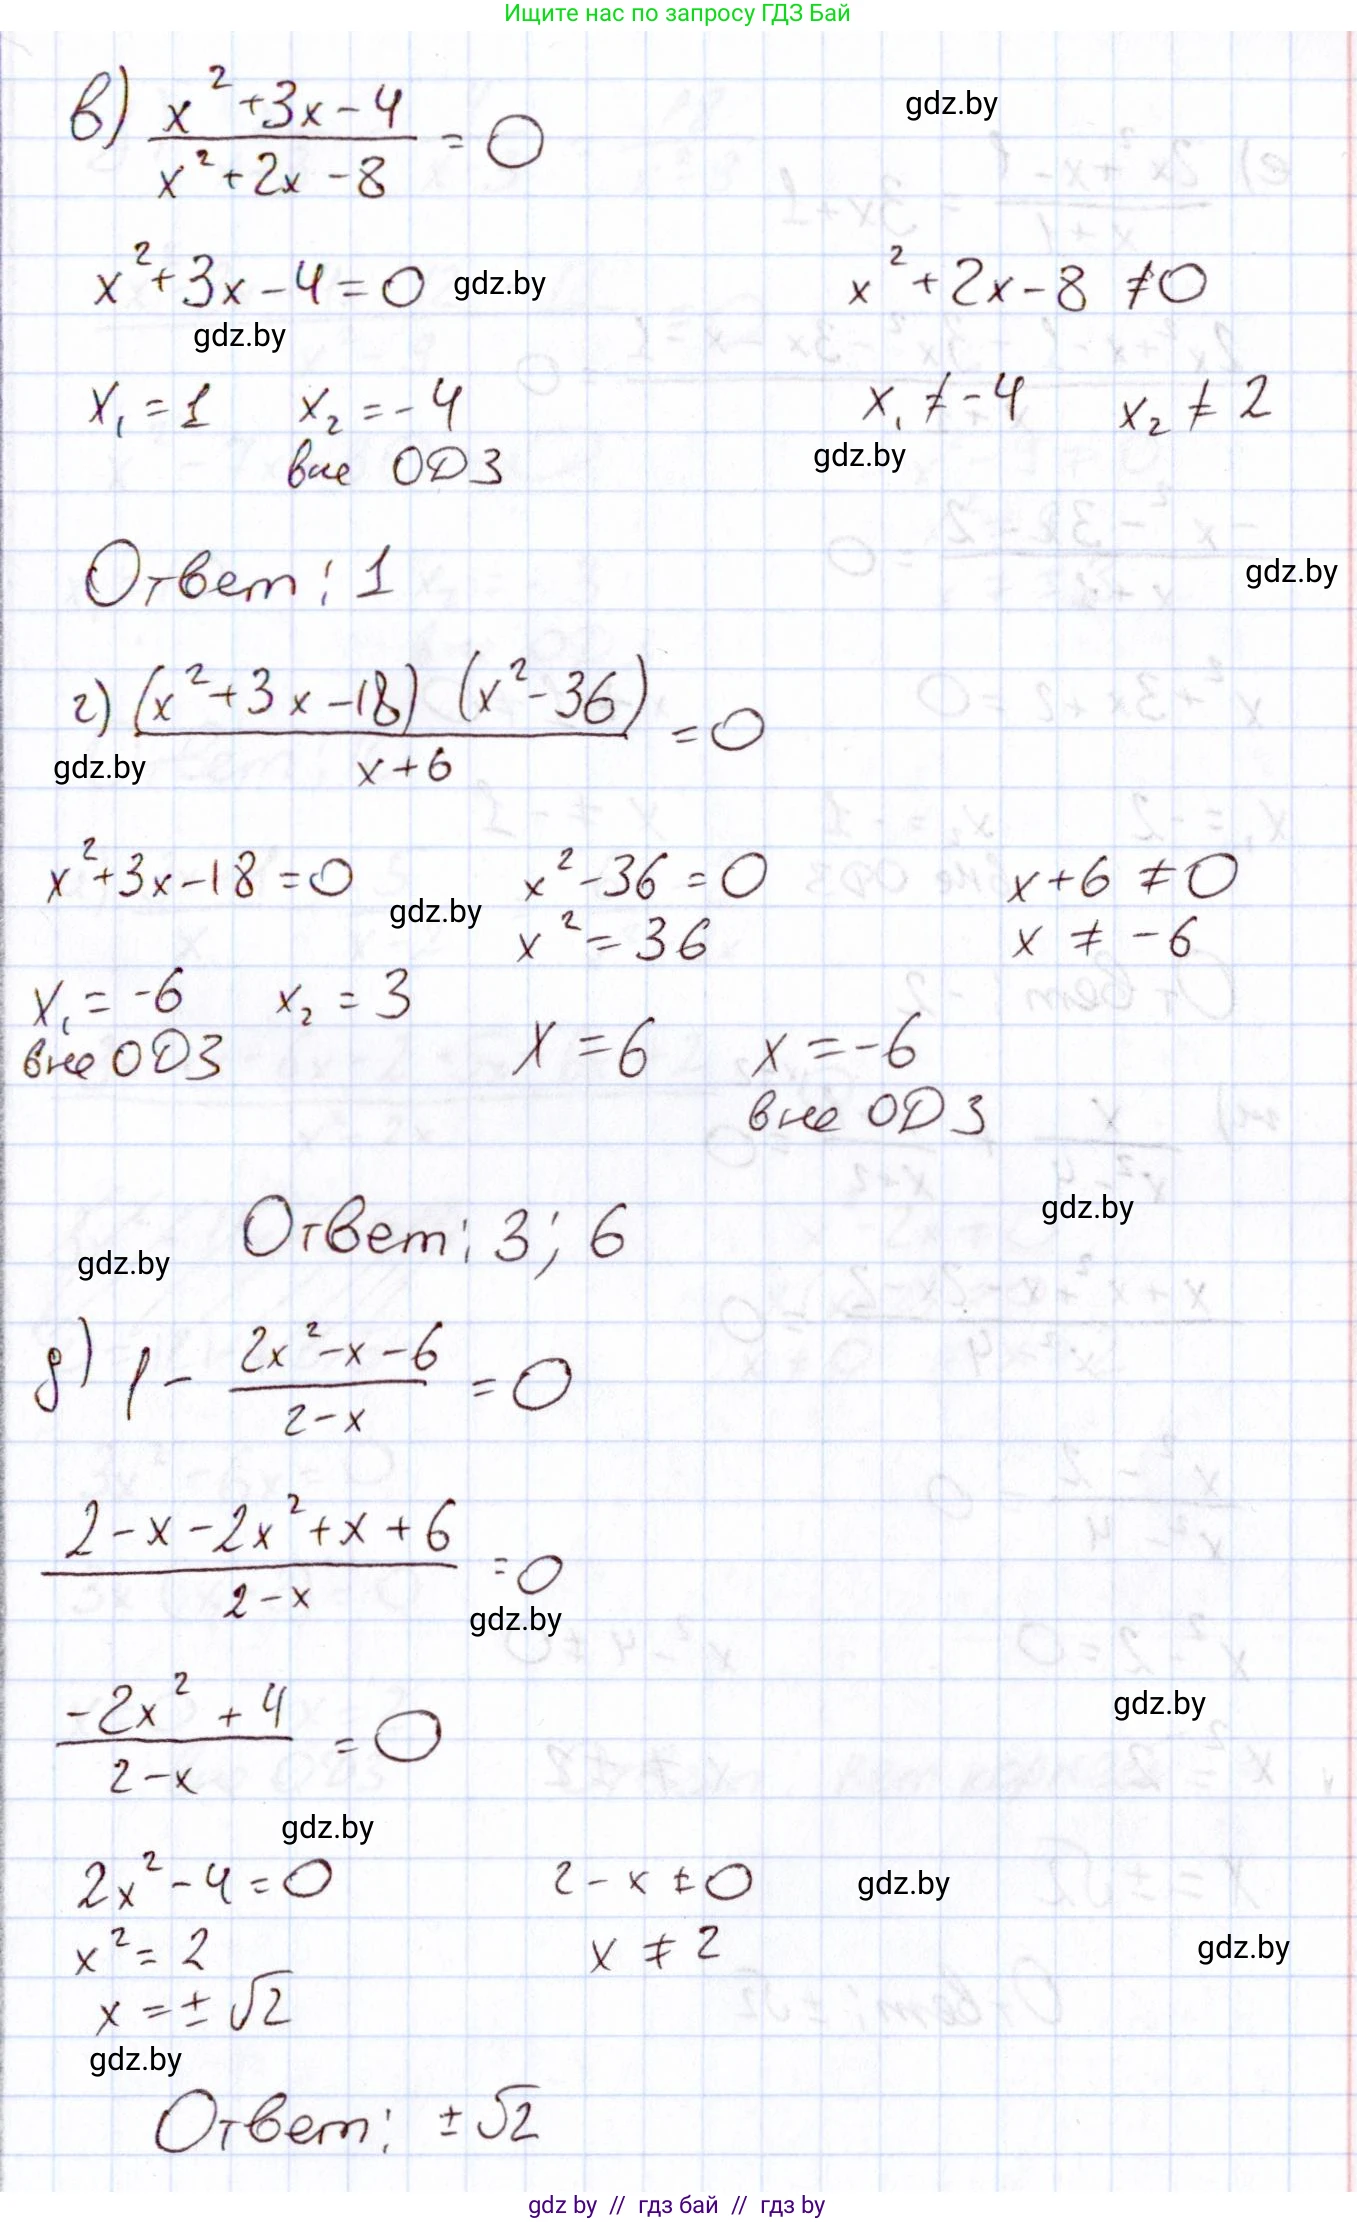 Ищите нас по запросу ГДЗ Бай
в) (x²+3x-4)/(x²+2x-8) = 0
gdz.by
x²+3x-4=0 gdz.by x²+2x-8 ≠0
gdz.by
x₁=1 x₂=-4 x₁≠-4 x₂≠2
вне ОДЗ gdz.by
Ответ: 1
gdz.by
г) (x²+3x-18) (x²-36)/(x+6) =0
gdz.by
x²+3x-18=0 x²-36=0 x+6≠0
gdz.by
x²=36 x≠-6
x₁=-6 x₂=3
вне ОДЗ x=6 x=-6
вне ОДЗ
gdz.by
Ответ: 3; 6
gdz.by
д) 1 - (2x²-x-6)/(2-x) =0
(2-x-2x²+x+6)/(2-x) =0
gdz.by
(-2x²+4)/(2-x) =0
gdz.by
gdz.by
2x²-4=0 2-x≠0 gdz.by
x²=2 x≠2 gdz.by
x=±√2
gdz.by
Ответ: ±√2
gdz by // гдз бай // гдз by